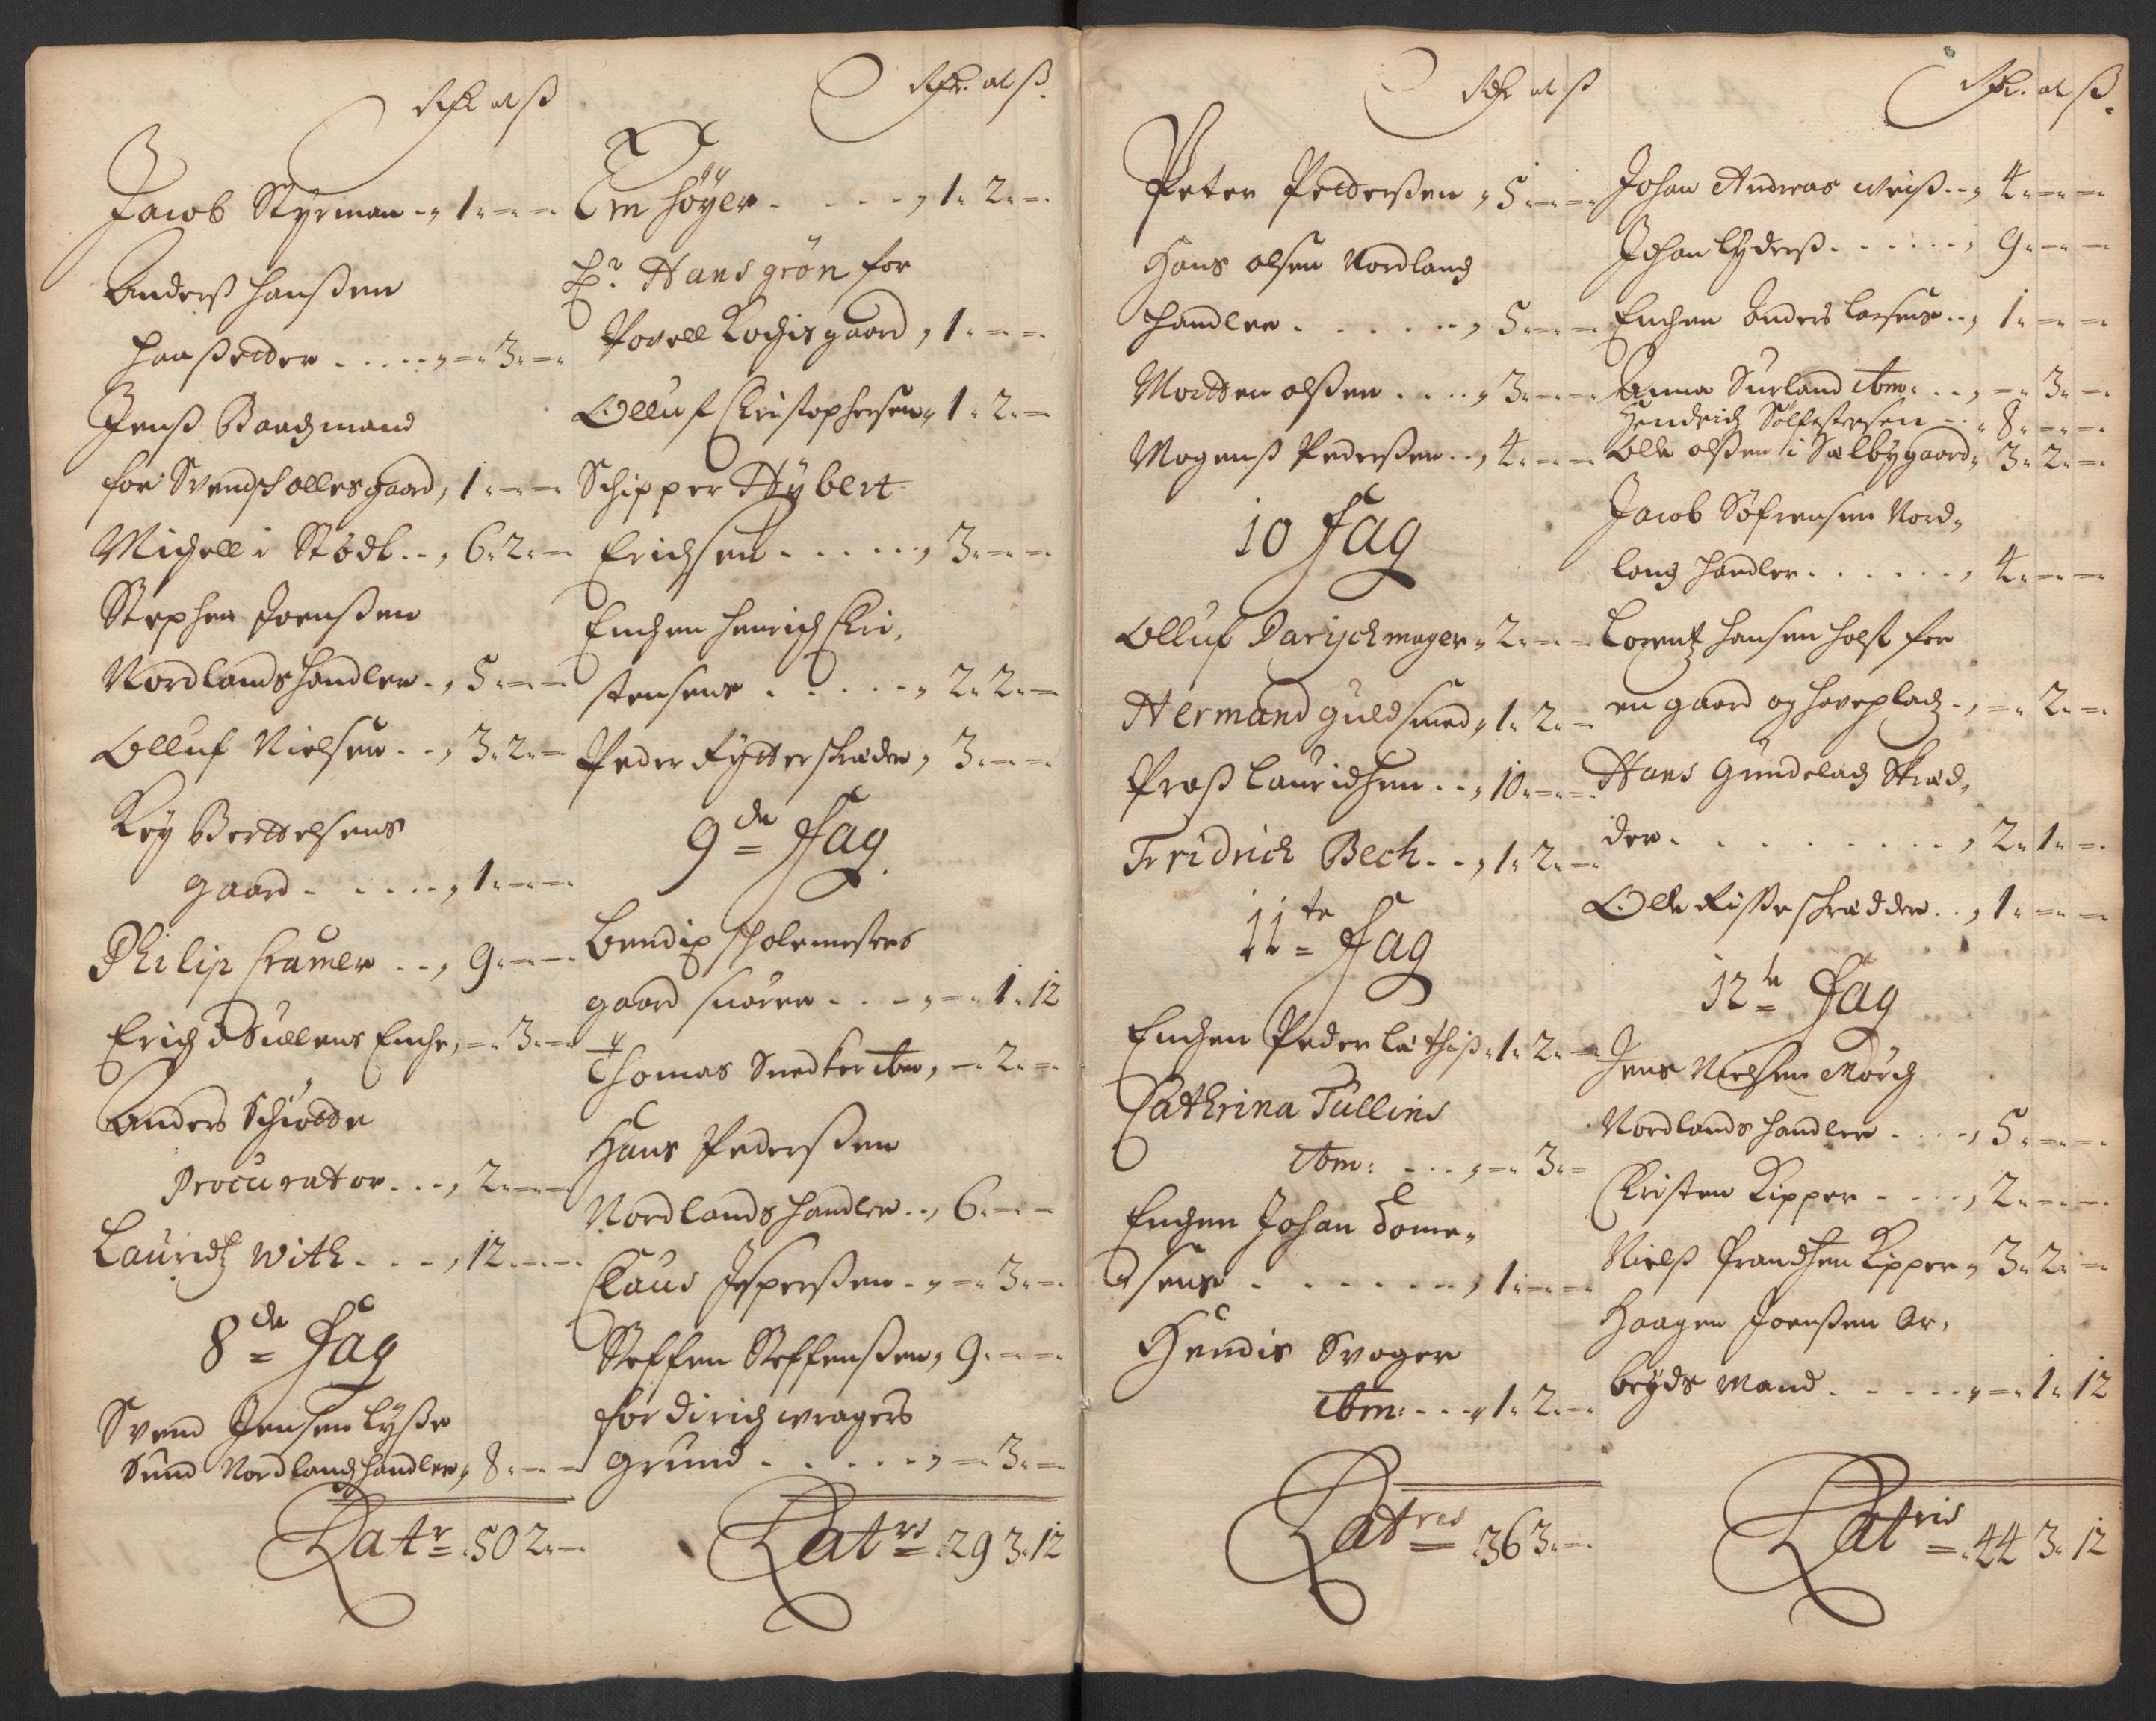 Rdr ort ß
Jacob Styrman . . 1 . - . -
Anderß Hanßen
Haaßetter . . . . . - . 3 . -
Jenß Baadzmand
for Svend Holles gaard , 1 . - . -
Michell i Stødl . . , 6 . 2 . -
Stephen Joenßen
Nordlands handler . , 5 . - . -
Olluf Nielsen . . , 3 . 2 . -
Key Berttelsens
gaard . . . . . , 1 . - . -
Philip Cramer . . , 9 . - . -
Erich Sullens Encke , - . 3 . -
Anders Schiøtte
Procurator . . . , 2 . - . -
Lauridtz With . . . , 12 . - . -
8de Fag
Svend Jensen Lyße
Sund Nordlandz handler , 8 . - . -
Latr 50 2 . -
Rdr. ort ß.
Em Høyer . . . . , 1 . 2 . -
Hr. Hans Grøn for
Povell Kochis gaard , 1 . - . -
Olluf Christophersen , 1 . 2 . -
Schipper Hybert
Erichsen . . . . . , 3 . - . -
Enchen Henrich Chri,
stensens . . . . . , 2 . 2 . -
Peder Rytter skreder , 3 . - . -
9de Fag
Bendix Skolemesters
gaard snører . . . , - . 1 . 12
Thomas Snedker ibm , - . 2 . -
Hans Pederßen
Nordlands handler . . , 6 . - . -
Claus Jesperßen . , - . 3 . -
Steffen Steffenßen , 9 . - . -
for Dirich wragers
grund . . . . . , - . 3 . -
Latrs 29 3 . 12
Rdr ort ß
Peter Petterßen , 5 . - . -
Hans olsen Nordlandz
handler . . . . . . , 5 . - . -
Mortten olßen . . . . , 3 . - . -
Mogenß Pederßen . . , 4 . - . -
10 Fag
Olluf Parijckmager , 2 . - . -
Hermand guldsmed , 1 . 2 . -
Praß Lauridsen . . , 10 . - . -
Fridrich Bech . . , 1 . 2 . -
11te Fag
Enchen Peder Læthiß , 1 . 2 . -
Cathrina Tullins
ibm : . . . , - . 3 . -
Enchen Johan Tome,
sens . . . . . . . , 1 . - . -
Hendis Svoger
ibm : . . . , 1 . 2 . -
Latres 36 3 . -
Rdr. ort ß.
Johan Andreas Weiß . . , 4 . - . -
Johan Lyderß . . . . . . , 9 . - . -
Enchen Anders Larsens . . , 1 . - . -
Anna Surland ibm : . . , - . 3 . -
Hendrich Sølfestersen . . , 8 . - . -
Olle olßen i Sælbygaard , 3 . 2 . -
Jacob Søfrensen Nord,
landz handler . . . . . . , 4 . - . -
Lorentz Hansen Holst for
en gaard og haveplads . , - . 2 . -
Hans Gundelach Skræd,
der . . . . . . . . . , 2 . 1 . -
Olle Risße skrædder . . , 1 . - . -
12te Fag
Jens Nielsen Mørch
Nordlands handler . . . , 5 . - . -
Christen Kipper . . . . , 2 . - . -
Nielß Frandsen Kipper , 3 . 2 . -
Haagen Joenßen Ar,
beyds mand . . . . . , - . 1 . 12
Latris 44 3 . 12